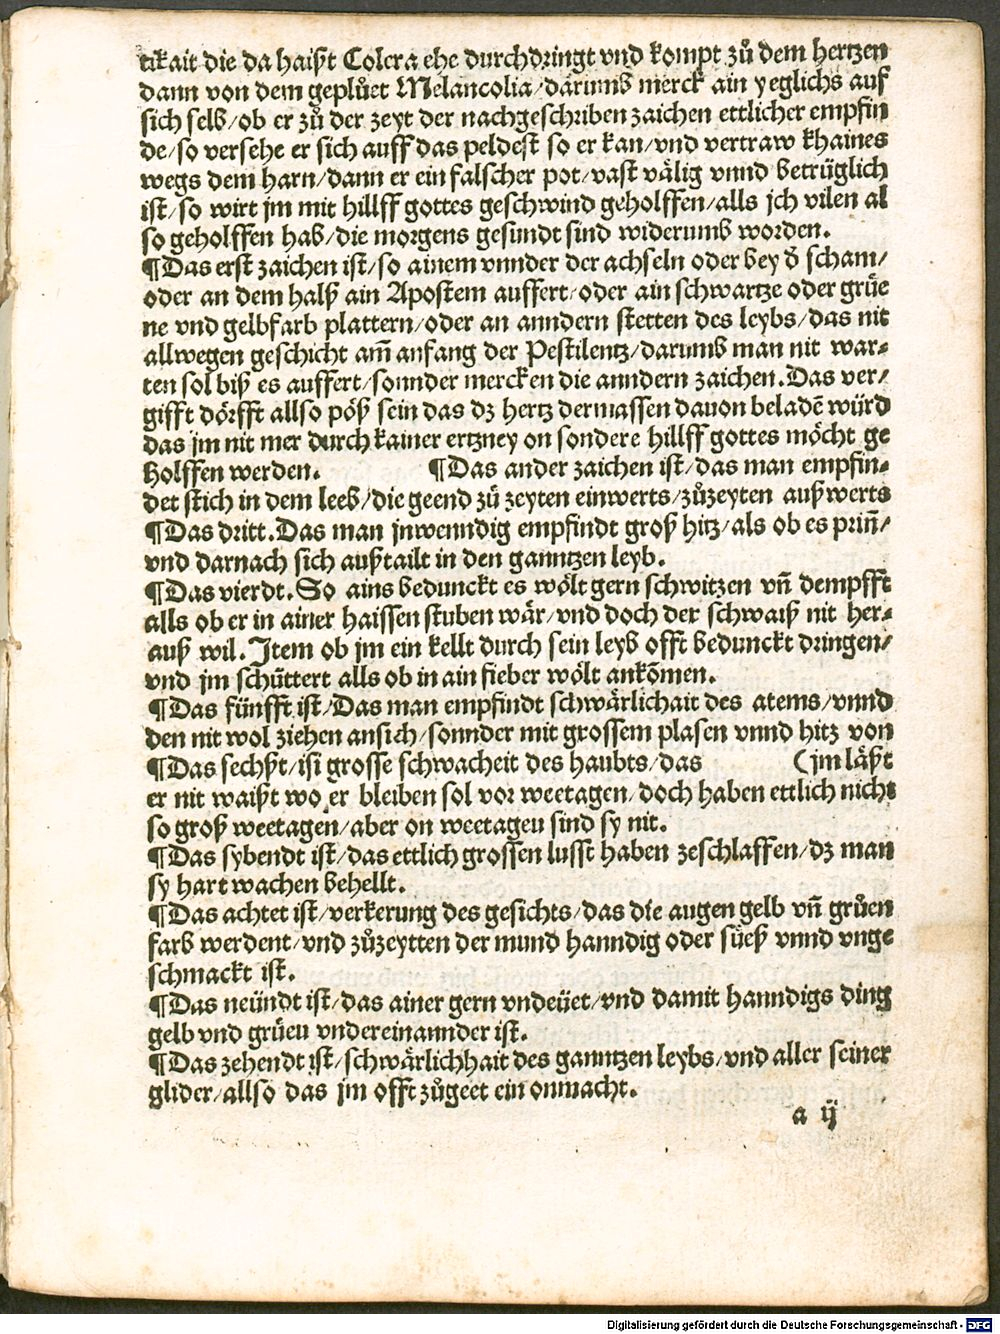 tikait die da haißt Colera ehe durchdringt vnd kompt zů dem hertzen
dann von dem geplůet Melancolia/darumb merck ain yeglichs auf
sich selb/ob er zů der zeyt der nachgeschriben zaichen ettlicher empfin
de/so versehe er sich auff das peldest so er kan/vnd vertraw khaines
wegs dem harn/dann er ein falscher pot/vast välig vnnd betrüglich
ist/so wirt jm mit hillff gottes geschwind geholffen/alls jch vilen al
so geholffen hab/die morgens gesundt sind widerumb worden.
¶Das erst zaichen ist/so ainem vnnder der achseln oder bey d̕ scham/
oder an dem halß ain Apostem auffert/oder ain schwartze oder grüe
ne vnd gelbfarb plattern/oder an anndern stetten des leybs/das nit
allwegen geschicht am̃ anfang der Pestilentz/darumb man nit war⸗
ten sol biß es auffert/sonnder mercken die anndern zaichen.Das ver/
gifft dörfft allso pöß sein das dz hertz dermassen dauon beladẽ würd
das jm nit mer durch kainer ertzney on sondere hillff gottes möcht ge
holffen werden. ¶Das ander zaichen ist/das man empfin⸗
det stich in dem leeb/die geend zů zeyten einwerts/zůzeyten außwerts
¶Das dritt.Das man jnwenndig empfindt groß hitz/als ob es prin̄/
vnd darnach sich außtailt in den ganntzen leyb.
¶Das vierdt.So ains bedunckt es wölt gern schwitzen vn̄ dempfft
alls ob er in ainer haissen stuben wär/vnd doch der schwaiß nit her⸗
auß wil.Item ob jm ein kellt durch sein leyb offt bedunckt dringen/
vnd jm schüttert alls ob in ain fieber wölt ankõmen.
¶Das fünfft ist/Das man empfindt schwärlichait des atems/vnnd
den nit wol ziehen ansich/sonnder mit grossem plasen vnnd hitz von
¶Das sechßt/isi grosse schwacheit des haubts/das (jm läßt
er nit waißt wo er bleiben sol vor weetagen/doch haben ettlich nicht
so groß weetagen/aber on weetageu sind sy nit.
¶Das sybendt ist/das ettlich grossen lusst haben zeschlaffen/dz man
sy hart wachen behellt.
¶Das achtet ist/verkerung des gesichts/das die augen gelb vn̄ grůen
farb werdent/vnd zůzeytten der mund hanndig oder süeß vnnd vnge
schmackt ist.
¶Das neündt ist/das ainer gern vndeüet/vnd damit hanndigs ding
gelb vnd grüeu vndereinannder ist.
¶Das zehendt ist/schwärlichhait des ganntzen leybs/vnd aller seiner
glider/allso das jm offt zůgeet ein onmacht.
a ij
Digitalisierung gefördert durch die Deutsche Forschungsgemeinschaft - DFG